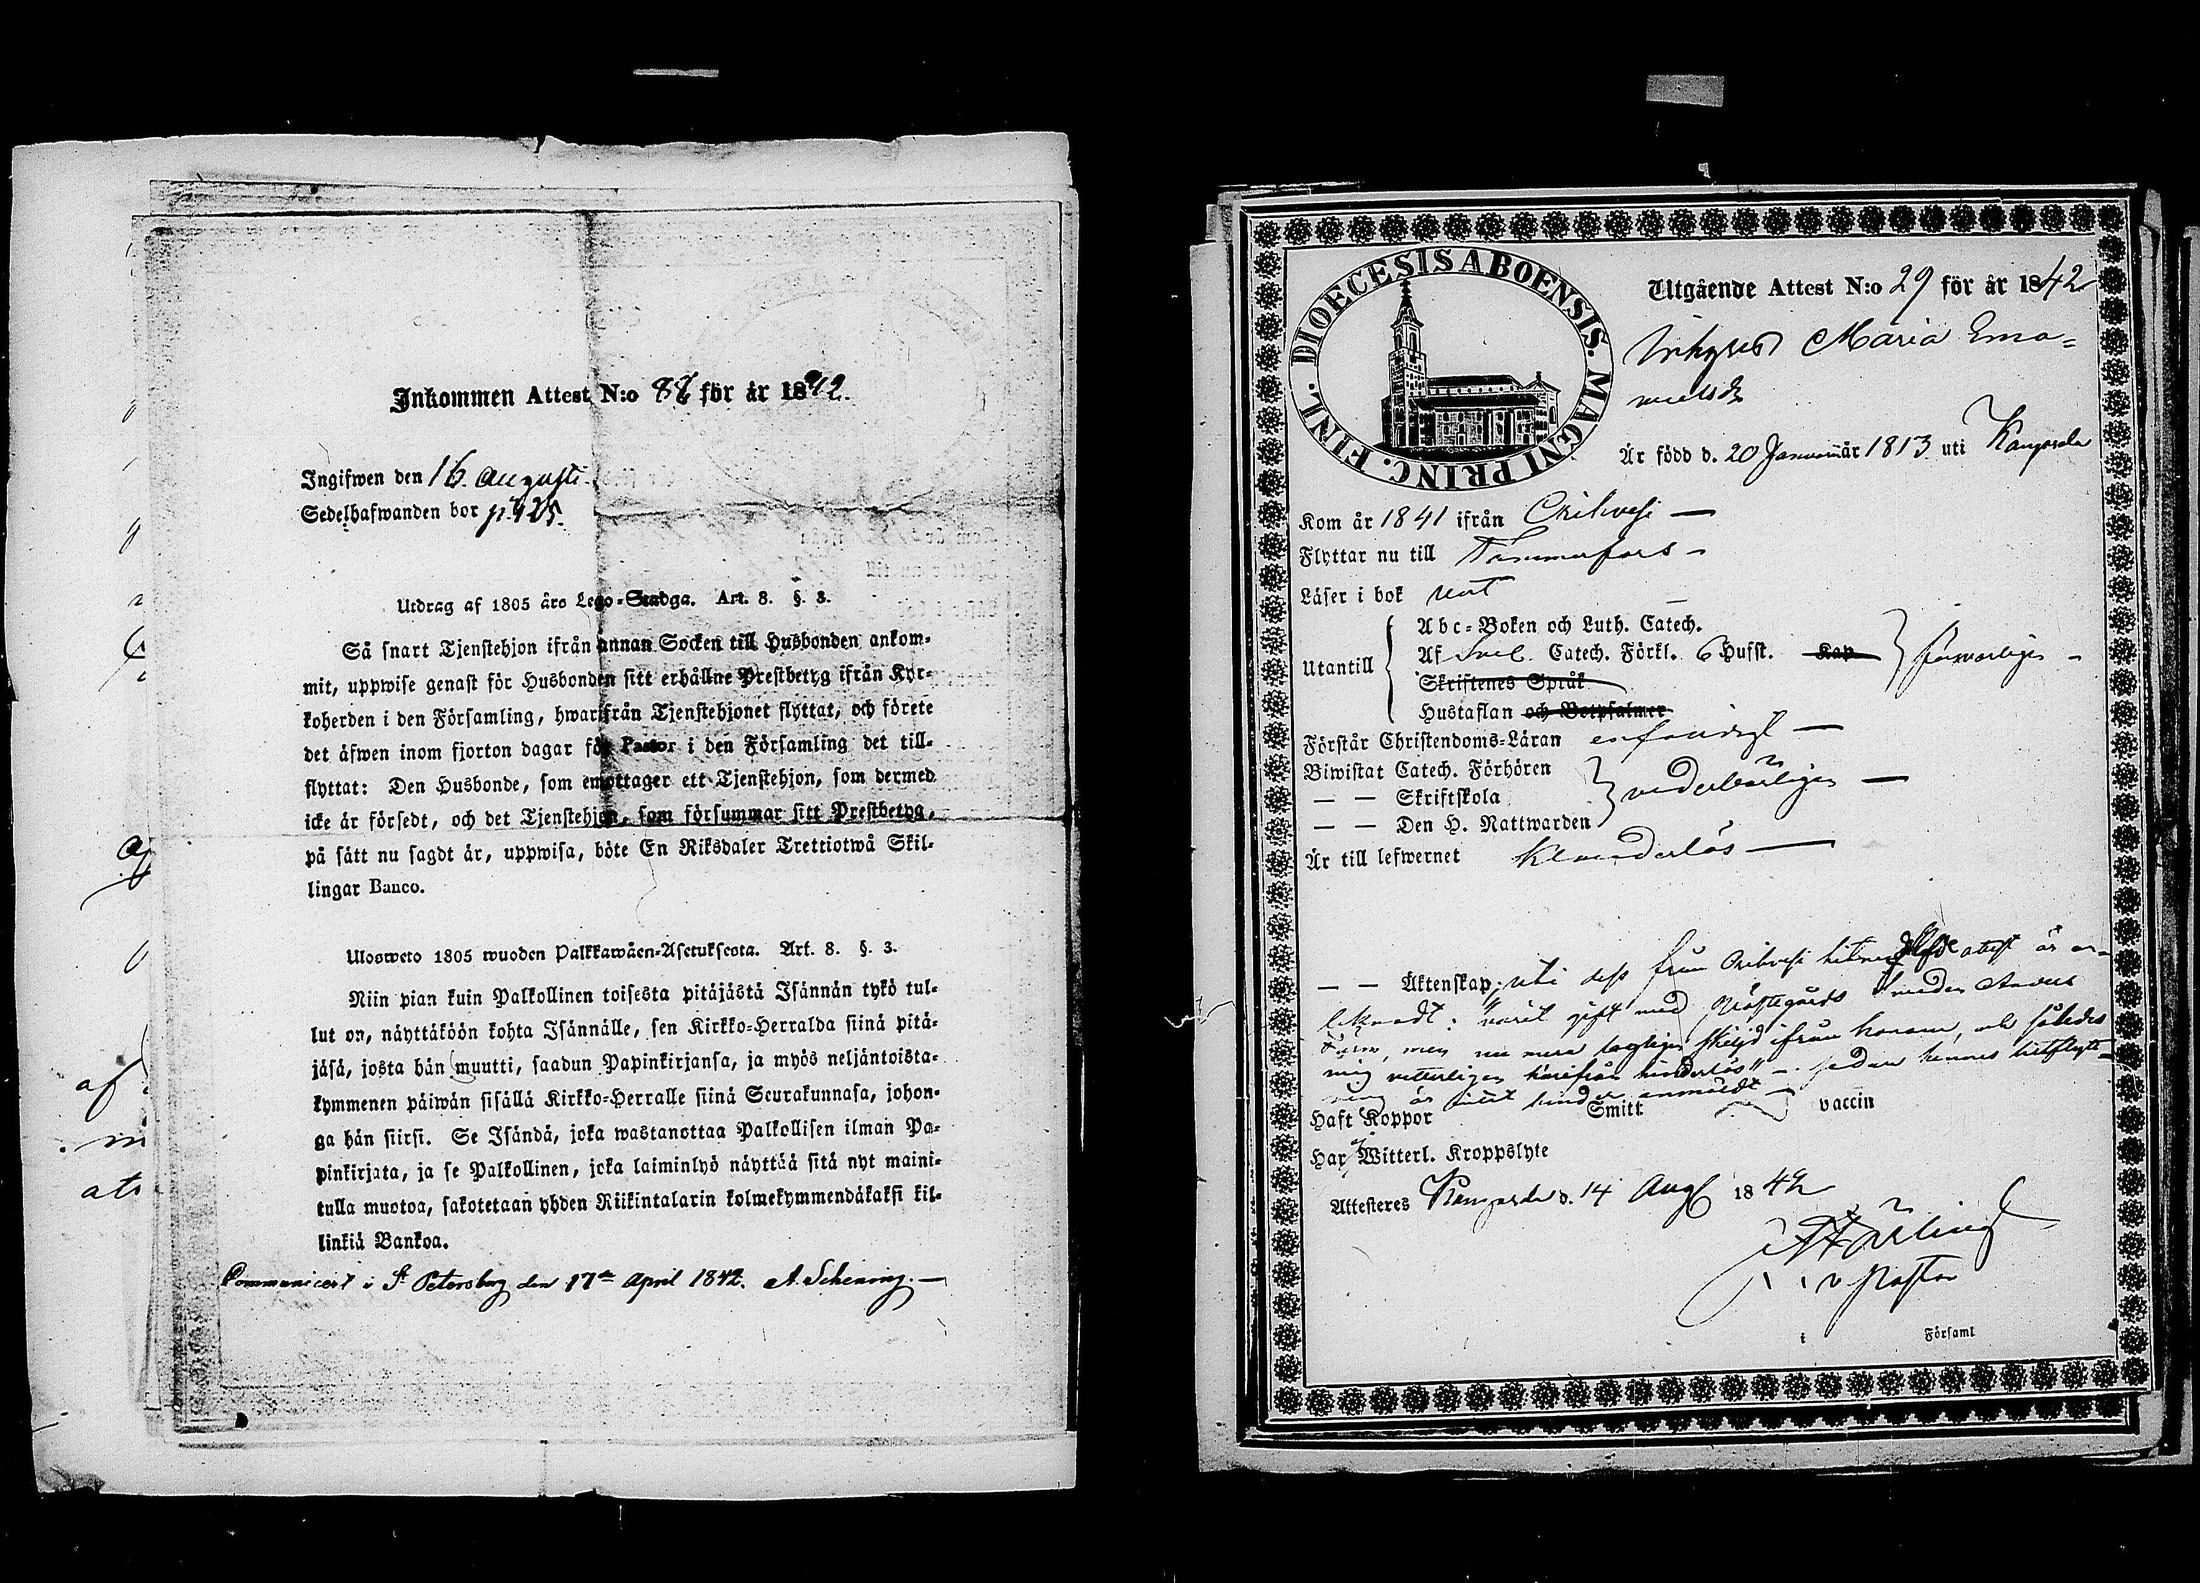 Inkommen Attest N:o 88 för år 1842.
Ingifwen den 16. Augusti.
Sedelhafwanden bor p. 425.
Utdrag af 1805 års Lego-Stadga. Art. 8. §. 3.
Så snart Tjenstehjon ifrån annan Socken till Husbonden ankom-
mit, uppwise genast för Husbonden sitt erhållne Prestbetyg ifrån Kyr-
koherden i den Församling, hwarifrån Tjenstehjonet flyttat, och förete
det äfwen inom fjorton dagar för Pastor i den Församling det till-
flyttat: Den Husbonde, som emottager ett Tjenstehjon, som dermed
icke är försedt, och det Tjenstehjon, som försummar sitt Prestbetyg,
på sätt nu sagdt är, uppwisa, böte En Riksdaler Trettiotwå Skil-
lingar Banco.
Ulosweto 1805 wuoden Palkkawäen-Asetuksesta. Art. 8. §. 3.
Niin pian kuin Palkollinen toisesta pitäjästä Isännän tykö tul-
lut on, näyttäköön kohta Isännälle, sen Kirkko-Herralda siinä pitä-
jäsä, josta hän muutti, saadun Papinkirjansa, ja myös neljäntoista-
kymmenen päiwän sisällä Kirkko-Herralle siinä Seurakunnasa, johon-
ga hän siirsi. Se Isändä, joka wastanottaa Palkollisen ilman Pa-
pinkirjata, ja se Palkollinen, joka laiminlyö näyttää sitä nyt maini-
tulla muotoa, sakotetaan yhden Riikintalarin kolmekymmendäkaksi kil-
linkiä Bankoa.
Communicert i St Petersburg den 17de April 1842. A. Schening.
DIOECESIS ABOENSIS. MAGNI PRINC. FINL.
Utgående Attest N:o 29 för år 1842
Maria Ema-
nuelsdr
Är född d. 20 Januari år 1813 uti Kangasala
Kom år 1841 ifrån Orihvesi
Flyttar nu till Tammerfors
Läser i bok rent
Abc-Boken och Luth. Catech.
Utantill Af Sveb. Catech. Förkl. 6 Hufst. Kap förswarligen
Skriftenes Språk
Hustaflan och Botpsalmer
Förstår Christendoms-Läran enfaldigt
Biwistat Catech. Förhören
— — Skriftskola vederbörligen
— — Den H. Nattwarden
Är till lefwernet klanderlös
— — Äktenskap: uti dess från Orihvesi attest är an-
teknadt: "varit gift med Prästegårds Anders
men nu mera lagligen skiljd ifrån honom, och således
mig vetterligen härifrån hinderlös" - sedan hennes hitflytt-
ning är intet hinder anmäldt
Haft Koppor Smitt vaccin
Har Witterl. Kroppslyte
Attesteres Kangasala d. 14 Aug 1842
v Pastor
i Församl